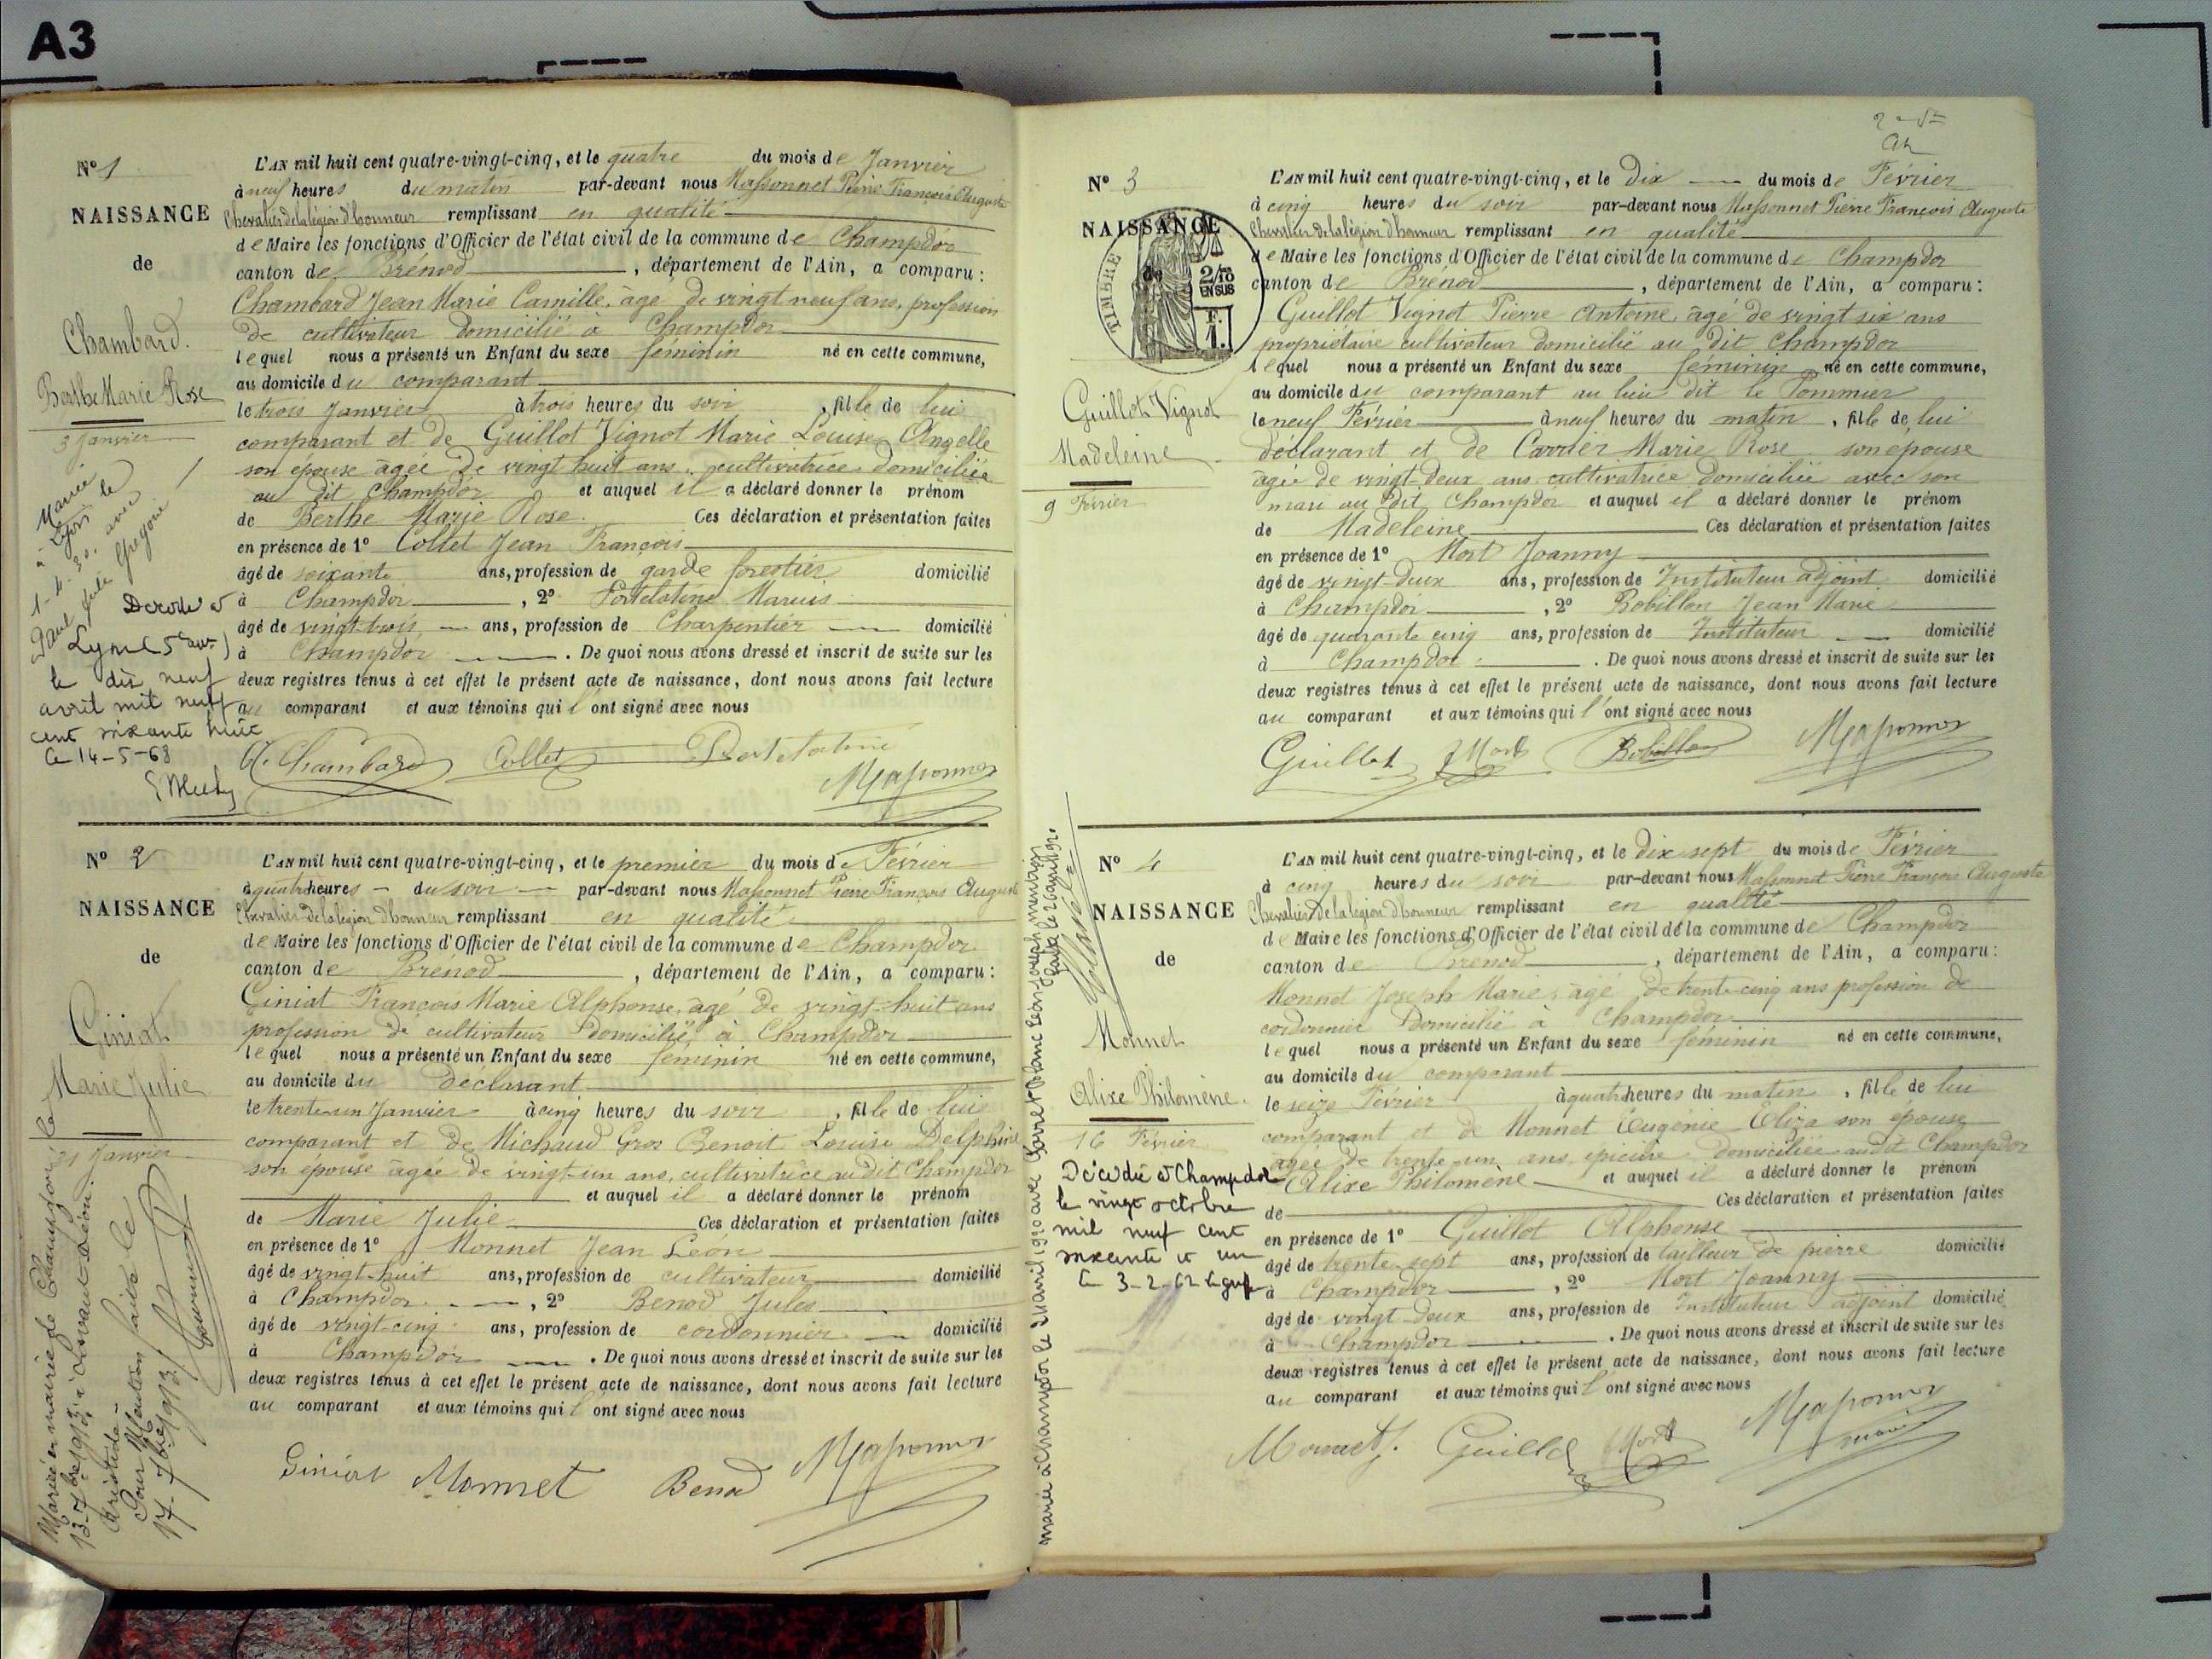 A3
N° 1
NAISSANCE
de
Chambard.
Berthe Marie Rose
3 Janvier
Mariée
à Lyon le
1-4-30, avec
Paul Grégoire
Lyon (5e arr.)
le dix neuf
avril mil neuf
cent soixante huit
Le 14-5-68
L'AN mil huit cent quatre-vingt-cinq, et le quatre du mois de Janvier
à neuf heures du matin par-devant nous Massonnet Pierre François Auguste
Chevalier de la légion d'honneur remplissant en qualité
de Maire les fonctions d'Officier de l'état civil de la commune de Champdor
canton de Brénod, département de l'Ain, a comparu :
Chambard Jean Marie Camille, âgé de vingt neuf ans, profession
de cultivateur domicilié à Champdor
lequel nous a présenté un Enfant du sexe féminin né en cette commune,
au domicile du comparant
le trois Janvier à trois heures du soir, fille de lui
comparant et de Guillot Vignot Marie Louise Angelle
son épouse âgée de vingt huit ans, cultivatrice domiciliée
au dit Champdor et auquel il a déclaré donner le prénom
de Berthe Marie Rose. Ces déclaration et présentation faites
en présence de 1° Collet Jean François
âgé de soixante ans, profession de garde forestier domicilié
à Champdor, 2° Portelatine Marius
âgé de vingt-trois ans, profession de Charpentier domicilié
à Champdor. De quoi nous avons dressé et inscrit de suite sur les
deux registres tenus à cet effet le présent acte de naissance, dont nous avons fait lecture
au comparant et aux témoins qui l'ont signé avec nous
C. Chambard Collet Portelatine
Massonnet
N° 2
NAISSANCE
de
Giniat
Marie Julie
31 Janvier
Mariée en mairie de
Aristide
Pour Mention faite le
L'AN mil huit cent quatre-vingt-cinq, et le premier du mois de Février
à quatre heures du soir par-devant nous Massonnet Pierre François Auguste
Chevalier de la légion d'honneur remplissant en qualité
de Maire les fonctions d'Officier de l'état civil de la commune de Champdor
canton de Brénod, département de l'Ain, a comparu :
Giniat François Marie Alphonse, âgé de vingt-huit ans
profession de cultivateur domicilié à Champdor
lequel nous a présenté un Enfant du sexe féminin né en cette commune,
au domicile du déclarant
le trente-un Janvier à cinq heures du soir, fille de lui
comparant et de Michaud Gros Benoit Louise Delphine
son épouse âgée de vingt-un ans, cultivatrice au dit Champdor
et auquel il a déclaré donner le prénom
de Marie Julie Ces déclaration et présentation faites
en présence de 1° Monnet Jean Léon
âgé de vingt-huit ans, profession de cultivateur domicilié
à Champdor, 2° Benod Jules
âgé de vingt-cinq ans, profession de cordonnier domicilié
à Champdor. De quoi nous avons dressé et inscrit de suite sur les
deux registres tenus à cet effet le présent acte de naissance, dont nous avons fait lecture
au comparant et aux témoins qui l'ont signé avec nous
Giniat Monnet Benod Massonnet
N° 3
NAISSANCE
de
TIMBRE
2/10
EN SUS
F.
1.
Guillot Vignot
Madeleine
9 Février
L'AN mil huit cent quatre-vingt-cinq, et le Dix du mois de Février
à cinq heures du soir par-devant nous Massonnet Pierre François Auguste
Chevalier de la légion d'honneur remplissant en qualité
de Maire les fonctions d'Officier de l'état civil de la commune de Champdor
canton de Brénod, département de l'Ain, a comparu :
Guillot Vignot Pierre Antoine, âgé de vingt six ans
propriétaire cultivateur domicilié au dit Champdor
lequel nous a présenté un Enfant du sexe féminin né en cette commune,
au domicile du comparant au lieu dit le Pommier
le neuf Février à neuf heures du matin, fille de lui
déclarant et de Carrier Marie Rose son épouse
âgée de vingt-deux ans cultivatrice domiciliée avec son
mari au dit Champdor et auquel il a déclaré donner le prénom
de Madeleine Ces déclaration et présentation faites
en présence de 1° Mort Joanny
âgé de vingt-deux ans, profession de Instituteur adjoint domicilié
à Champdor, 2° Robillon Jean Marie
âgé de quarante cinq ans, profession de Instituteur domicilié
à Champdor. De quoi nous avons dressé et inscrit de suite sur les
deux registres tenus à cet effet le présent acte de naissance, dont nous avons fait lecture
au comparant et aux témoins qui l'ont signé avec nous
Guillot J Mort Robillon Massonnet
N° 4
NAISSANCE
de
Monnet
Alixe Philomène.
16 Février
Décédée à Champdor
le vingt octobre
mil neuf cent
soixante et un
Le 3-2-62
L'AN mil huit cent quatre-vingt-cinq, et le dix sept du mois de Février
à cinq heures du soir par-devant nous Massonnet Pierre François Auguste
Chevalier de la légion d'honneur remplissant en qualité
de Maire les fonctions d'Officier de l'état civil de la commune de Champdor
canton de Brénod, département de l'Ain, a comparu :
Monnet Joseph Marie, âgé de trente-cinq ans profession de
cordonnier domicilié à Champdor
lequel nous a présenté un Enfant du sexe féminin né en cette commune,
au domicile du comparant
le seize Février à quatre heures du matin, fille de lui
comparant et de Monnet Eugénie Eliza son épouse
âgée de trente-un ans, épicière domiciliée au dit Champdor
Alixe Philomène et auquel il a déclaré donner le prénom
de Ces déclaration et présentation faites
en présence de 1° Guillot Alphonse
âgé de trente-sept ans, profession de tailleur de pierre domicilié
à Champdor, 2° Mort Joanny
âgé de vingt deux ans, profession de Instituteur adjoint domicilié
à Champdor. De quoi nous avons dressé et inscrit de suite sur les
deux registres tenus à cet effet le présent acte de naissance, dont nous avons fait lecture
au comparant et aux témoins qui l'ont signé avec nous
Monnet J. Guillot Mort Massonnet
maire